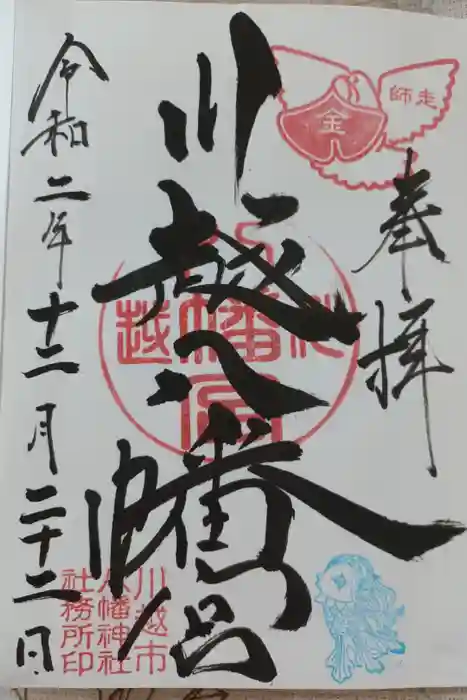 奉拝
師走
金
川越八幡宮
川越
八幡宮
令和二年十二月二十二日
川越市
八幡神社
社務所印